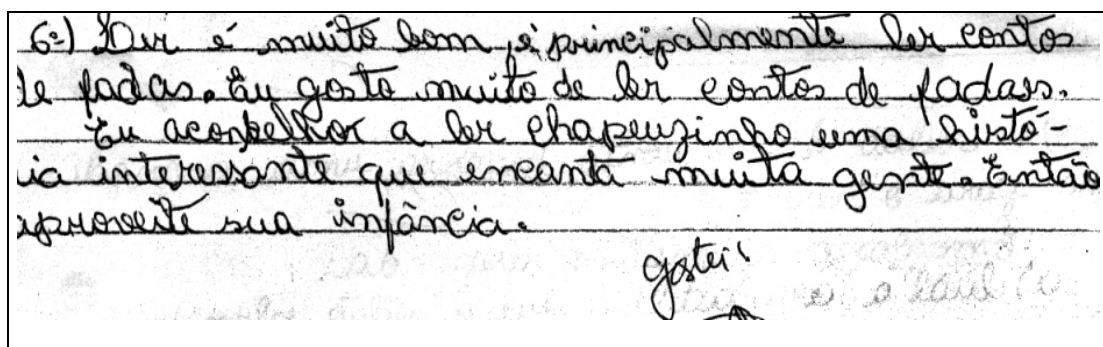 6ª) Ler é muito bom, é principalmente ler contos
de fadas. Eu gosto muito de ler contos de fadas.
Eu aconselhor a ler chapeuzinho uma histó-
ia interessante que encanta muita gente. Então
aproveite sua infância.
gostei!